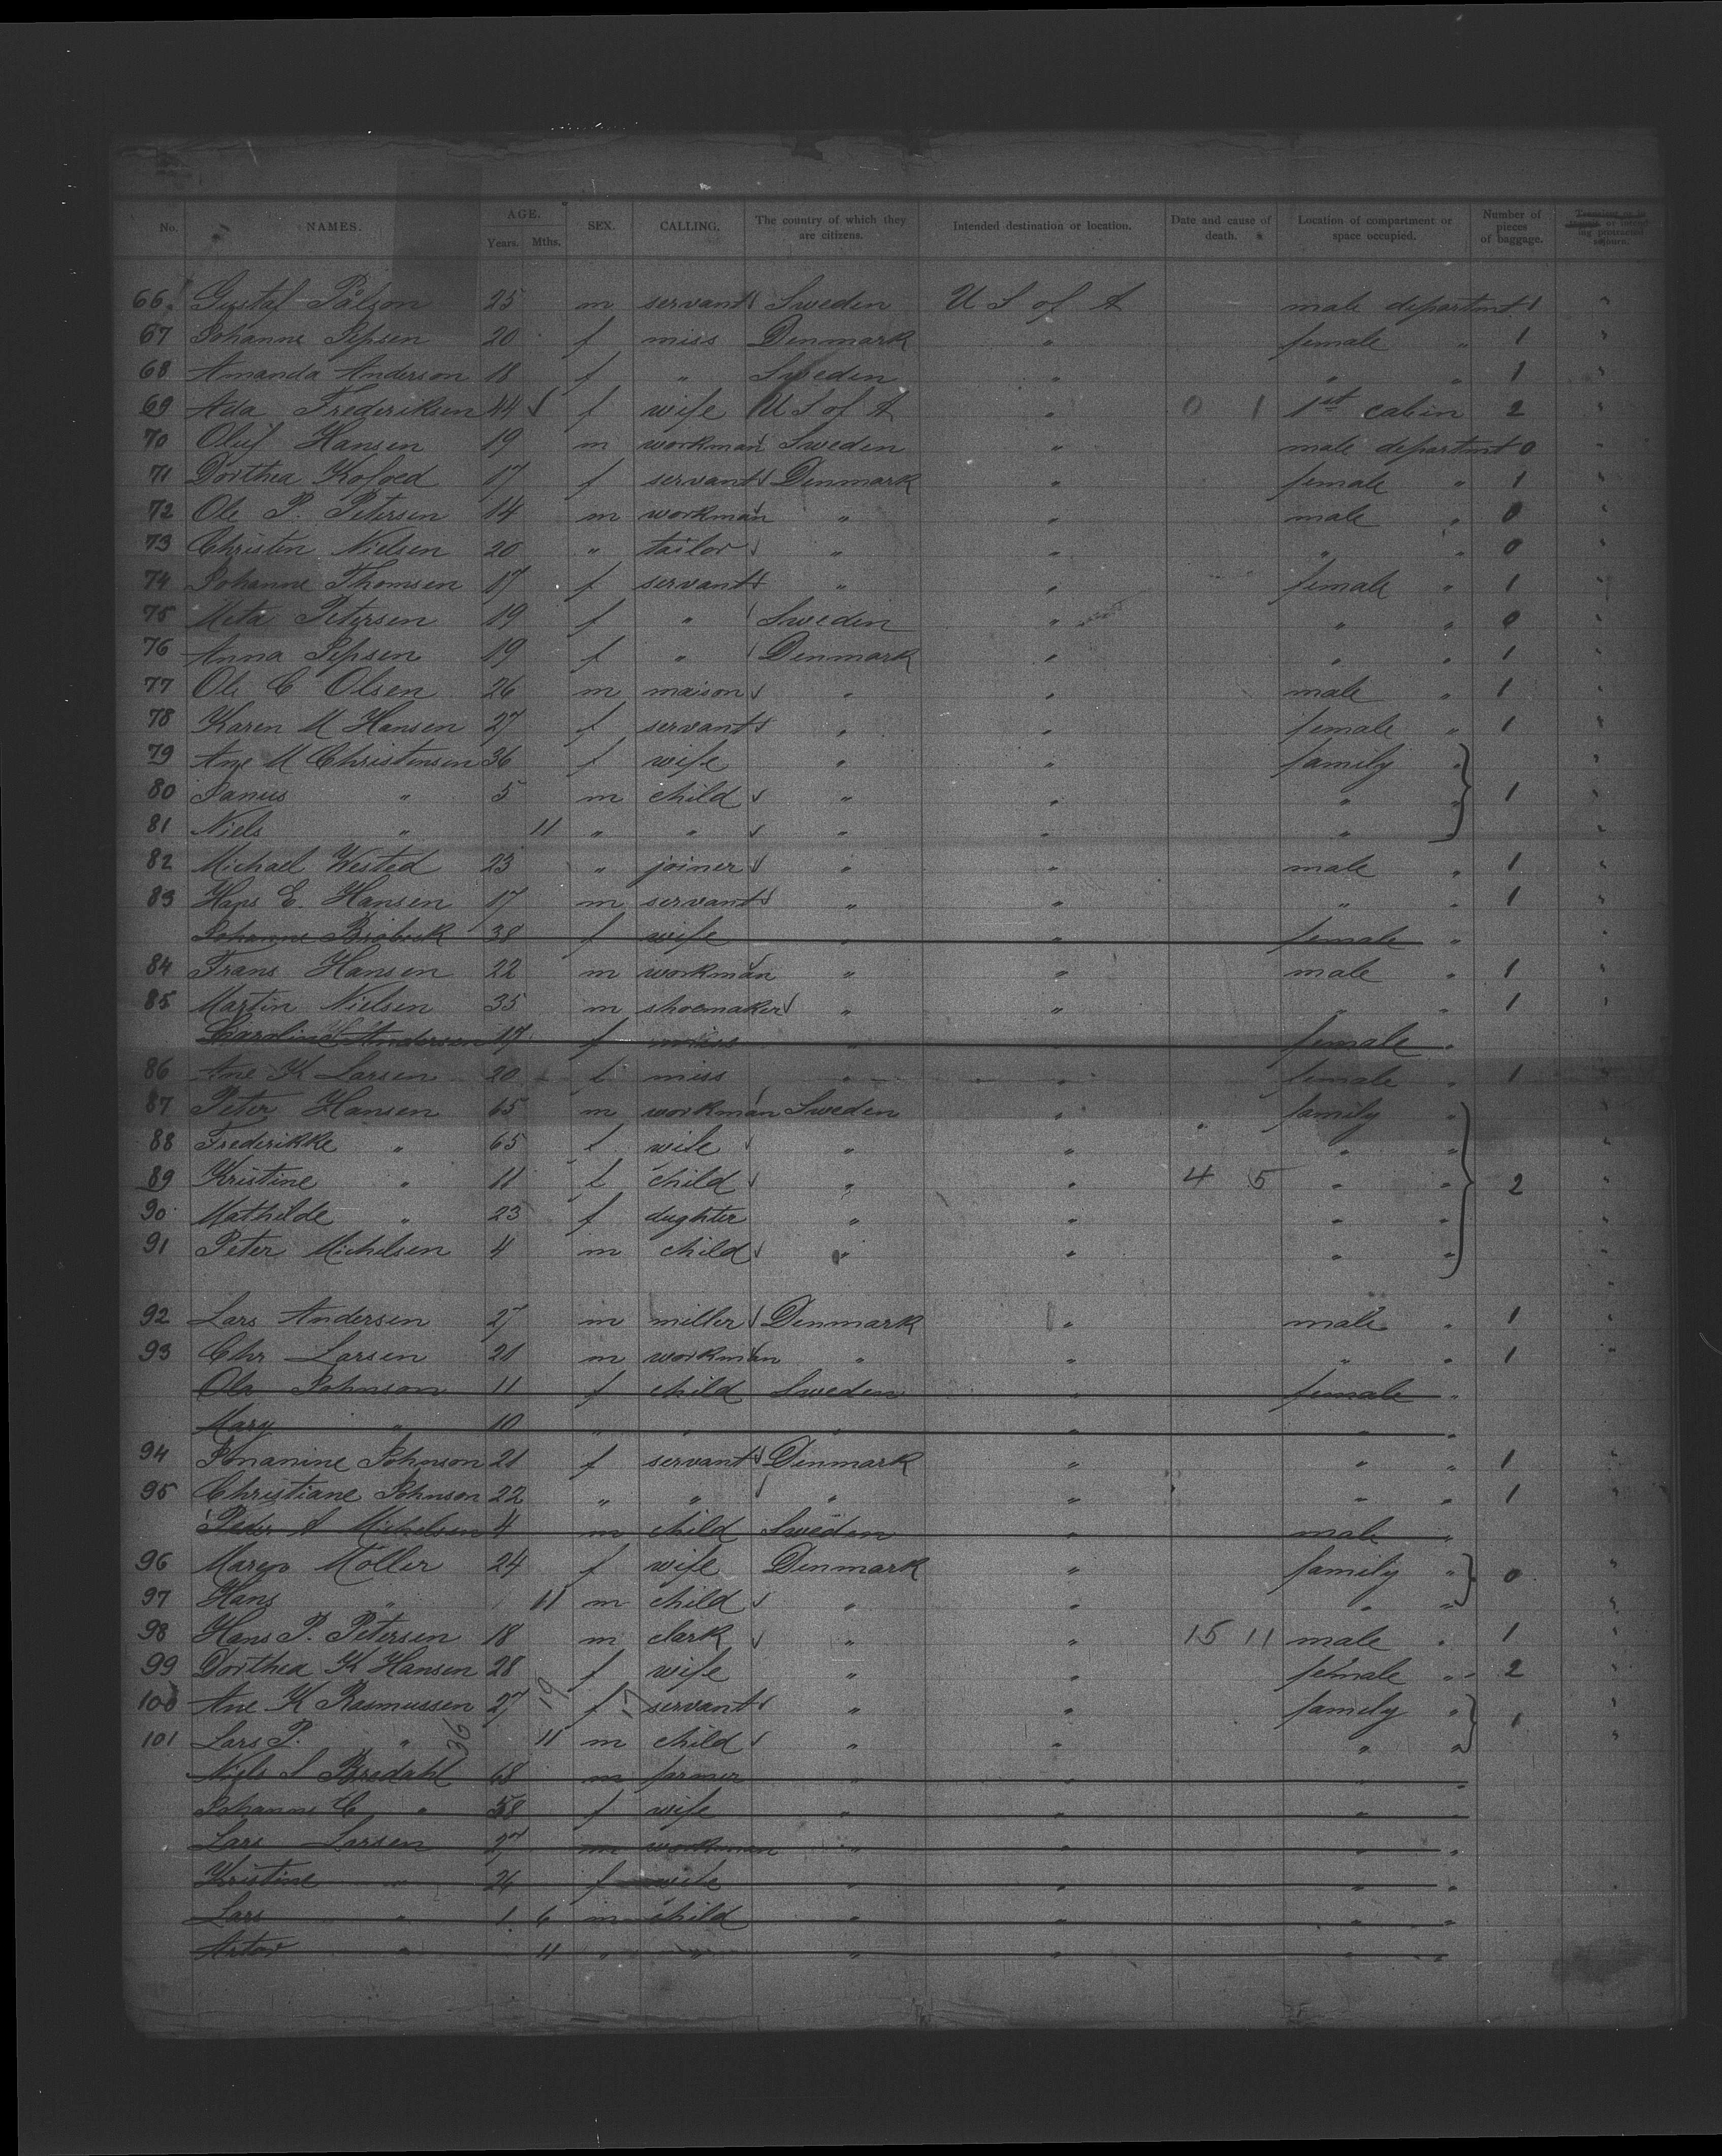 No. NAMES. AGE. Years. Mths. SEX. CALLING. The country of which they are citizens. Intended destination or location. Date and cause of death. Location of compartment or space occupied. Number of pieces of baggage.
66. Gustaf Pålson 25 m servant Sweden U S of A male departmt 1 "
67 Johanne Jepsen 20 f miss Denmark " female " 1 "
68 Amanda Anderson 18 f " Sweden " " " 1 "
69 Ada Frederiksen 44 f wife U S of A " 0 1 1st cabin 2 "
70 Oluf Hansen 19 m workman Sweden " male departmt 0 "
71 Dorthea Kofoed 17 f servant Denmark " female " 1 "
72 Ole P. Petersen 14 m workman " " male " 0 "
73 Christen Nielsen 20 " tailor " " " " 0 "
74 Johanne Thomsen 17 f servant " " female " 1 "
75 Meta Petersen 19 f " Sweden " " " 0 "
76 Anna Jepsen 19 f " Denmark " " " 1 "
77 Ole C Olsen 26 m maison " " male " 1 "
78 Karen M Hansen 27 f servant " " female " 1 "
79 Ane M Christensen 36 f wife " " family " "
80 Janus " 5 m child " " " " 1 "
81 Niels " 11 " " " " " " "
82 Michael Wested 23 " joiner " " male " 1 "
83 Hans E. Hansen 17 m servant " " " " 1 "
Johanne 38 f wife " " female " "
84 Frans Hansen 22 m workman " " male " 1 "
85 Martin Nielsen 35 m shoemaker " " " " 1 "
Carolina Andersen 17 f miss " " female "
86 Ane K Larsen 20 f miss " " female " 1 "
87 Peter Hansen 65 m workman Sweden " family " "
88 Frederikke " 65 f wife " " " " "
89 Kristine " 11 f child " " 4 5 " " 2 "
90 Mathilde " 23 f dughter " " " " "
91 Peter Michelsen 4 m child " " " " "
92 Lars Andersen 27 m miller Denmark " male " 1 "
93 Chr Larsen 21 m workman " " " " 1 "
Ole Johnson 11 f child Sweden " female "
Mary " 10 " " " " " "
94 Johnson 21 f servant Denmark " " " 1 "
95 Christiane Johnson 22 " " " " " " 1 "
Peder A Michelsen 4 m child Sweden " male "
96 Maren Möller 24 f wife Denmark " family " 0 "
97 Hans " 11 m child " " " " "
98 Hans P. Petersen 18 m clark " " 15 11 male " 1 "
99 Dorthea K Hansen 28 f wife " " female " 2 "
100 Ane K Rasmussen 27 19 f servant " " family " "
101 Lars P. " 36 11 m child " " " " 1 "
Niels S Bredahl 68 m farmer " " " "
Johanne C " 58 f wife " " " "
Lars Larsen 27 m workman " " " "
Kristine " 26 f wife " " " "
Lars " 1 6 m child " " " "
" 11 " " " " " "